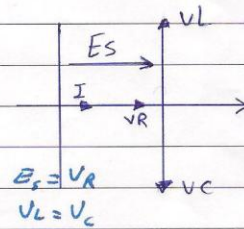 VL
Es
I
VR
Es = VR
VL = Vc
VC